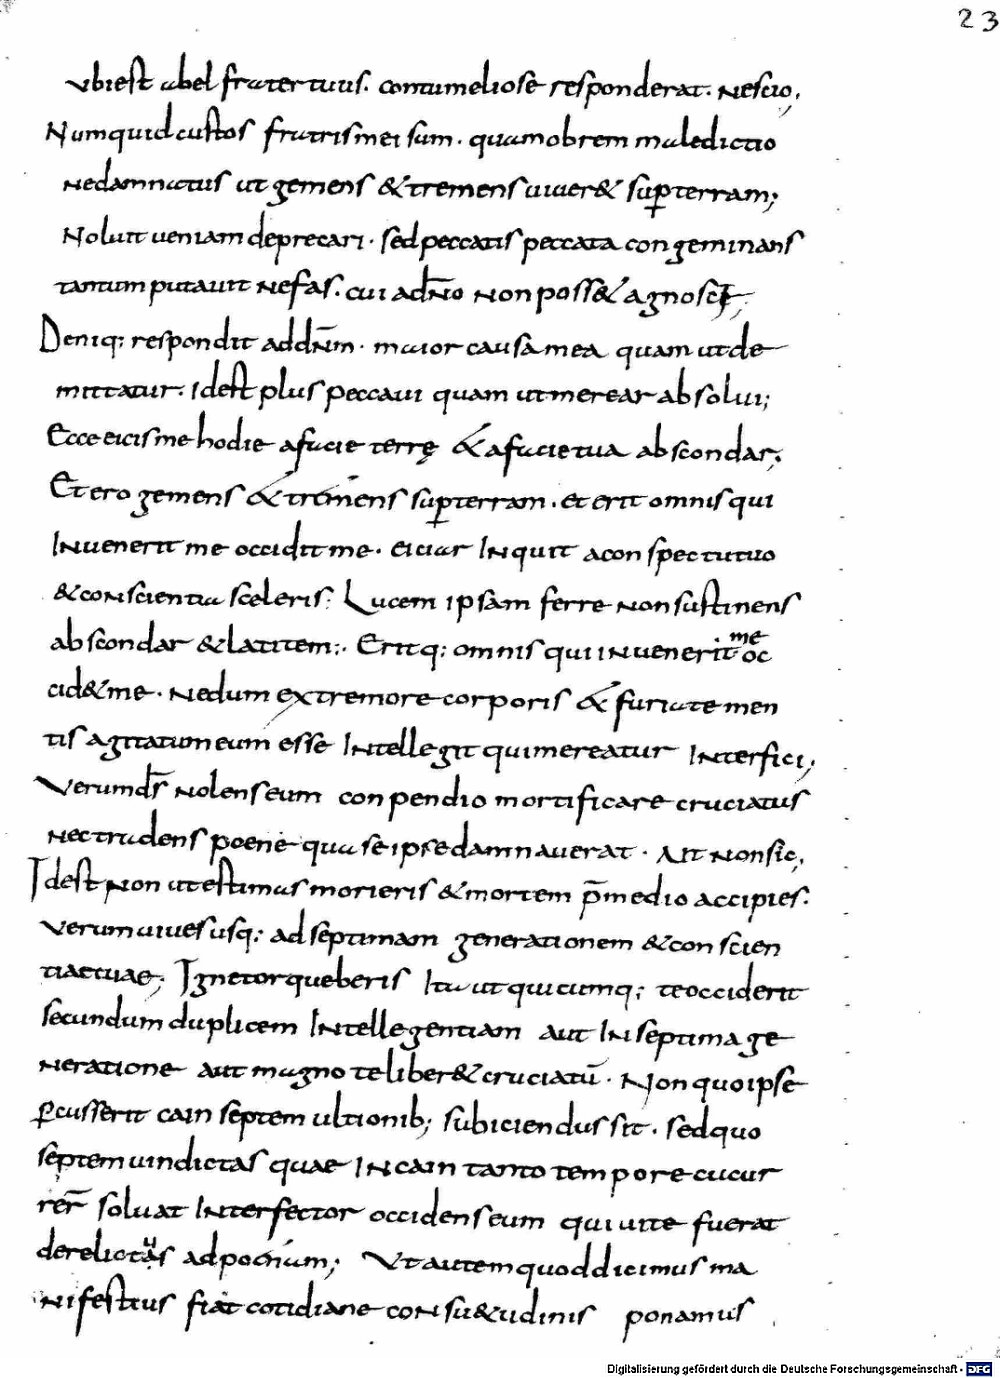 23
ubi est abel frater tuus. contumeliose responderat. Nescio,
Numquid custos fratris mei sum. quamobrem maledictio
ne damnatus ut gemens & tremens uiuer& sup terram;
Noluit ueniam deprecari. sed peccatis peccata congeminans
tantum putauit nefas. cui a dño non poss& agnosci;
Deniq; respondit ad dñm. maior causa mea quam ut de
mittatur. idest plus peccaui quam ut merear absolui;
Ecce eicis me hodie a facie terrę & a facie tua abscondar;
Et ero gemens & tremens sup terram. et erit omnis qui
Inuenerit me occidit me. eiciar Inquit a conspectu tuo
& conscientia sceleris; Lucem ipsam ferre non sustinens
abscondar & latitem;. Eritq; omnis qui inuenerit me oc
cid& me. nedum ex tremore corporis & furiate men
tis agitatum eum esse Intellegit qui mereatur Interfici;
Verum dš nolens eum conpendio mortificare cruciatus
nec trudens poene qua se ipse damnauerat. Ait non sic,
Idest Non ut estimas morieris & mortem p̄ medio accipies.
Verum uiues usq; ad septimam generationem & conscien
tiae tuae; Igne torqueberis Ita ut quicumq; te occiderit
secundum duplicem Intellegentiam aut In septima ge
neratione aut magno te liber& cruciatū. Non quo ipse
pcusserit cain septem ultionib; subiciendus sit. sed quo
septem uindictas quae In cain tanto tempore cucur
rer̄ soluat Interfector occidens eum qui uite fuerat
derelictus ad poenam; Ut autem quod dicimus ma
nifestius fiat cotidiane consu&udinis ponamus
Digitalisierung gefördert durch die Deutsche Forschungsgemeinschaft - DFG